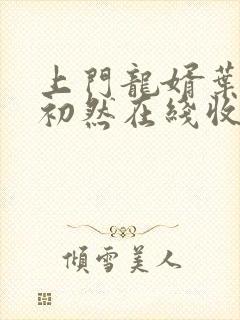 上門龍婿葉
初然在綫收
傾雪美人